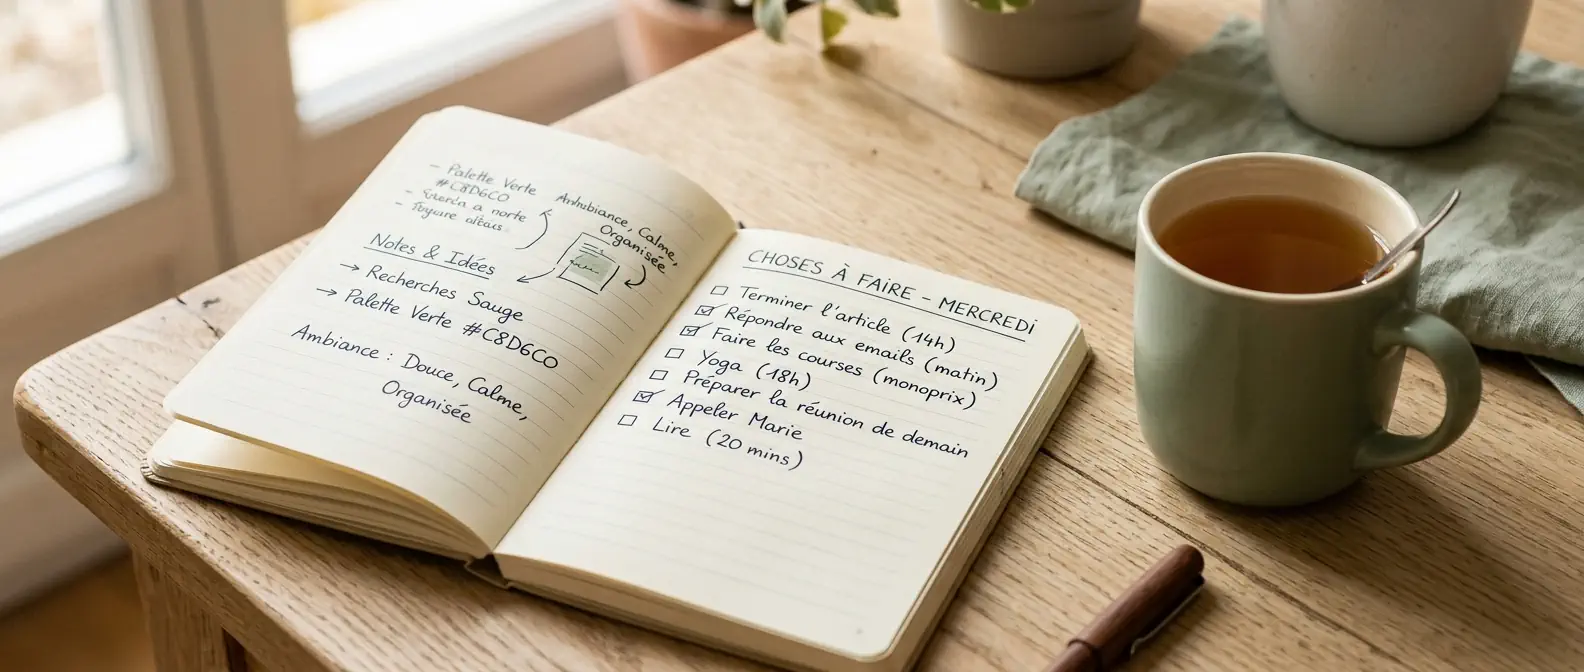 - Palette Verte
#C8D6C0
Ambiance, Calme,
Organisée
Notes & Idées
→ Recherches Sauge
→ Palette Verte #C8D6C0
Ambiance : Douce, Calme,
Organisée
CHOSES À FAIRE - MERCREDI
☐ Terminer l'article (14h)
☑ Répondre aux emails (matin)
☑ Faire les courses (monoprix)
☐ Yoga (18h)
☐ Préparer la réunion de demain
☑ Appeler Marie
☐ Lire (20 mins)